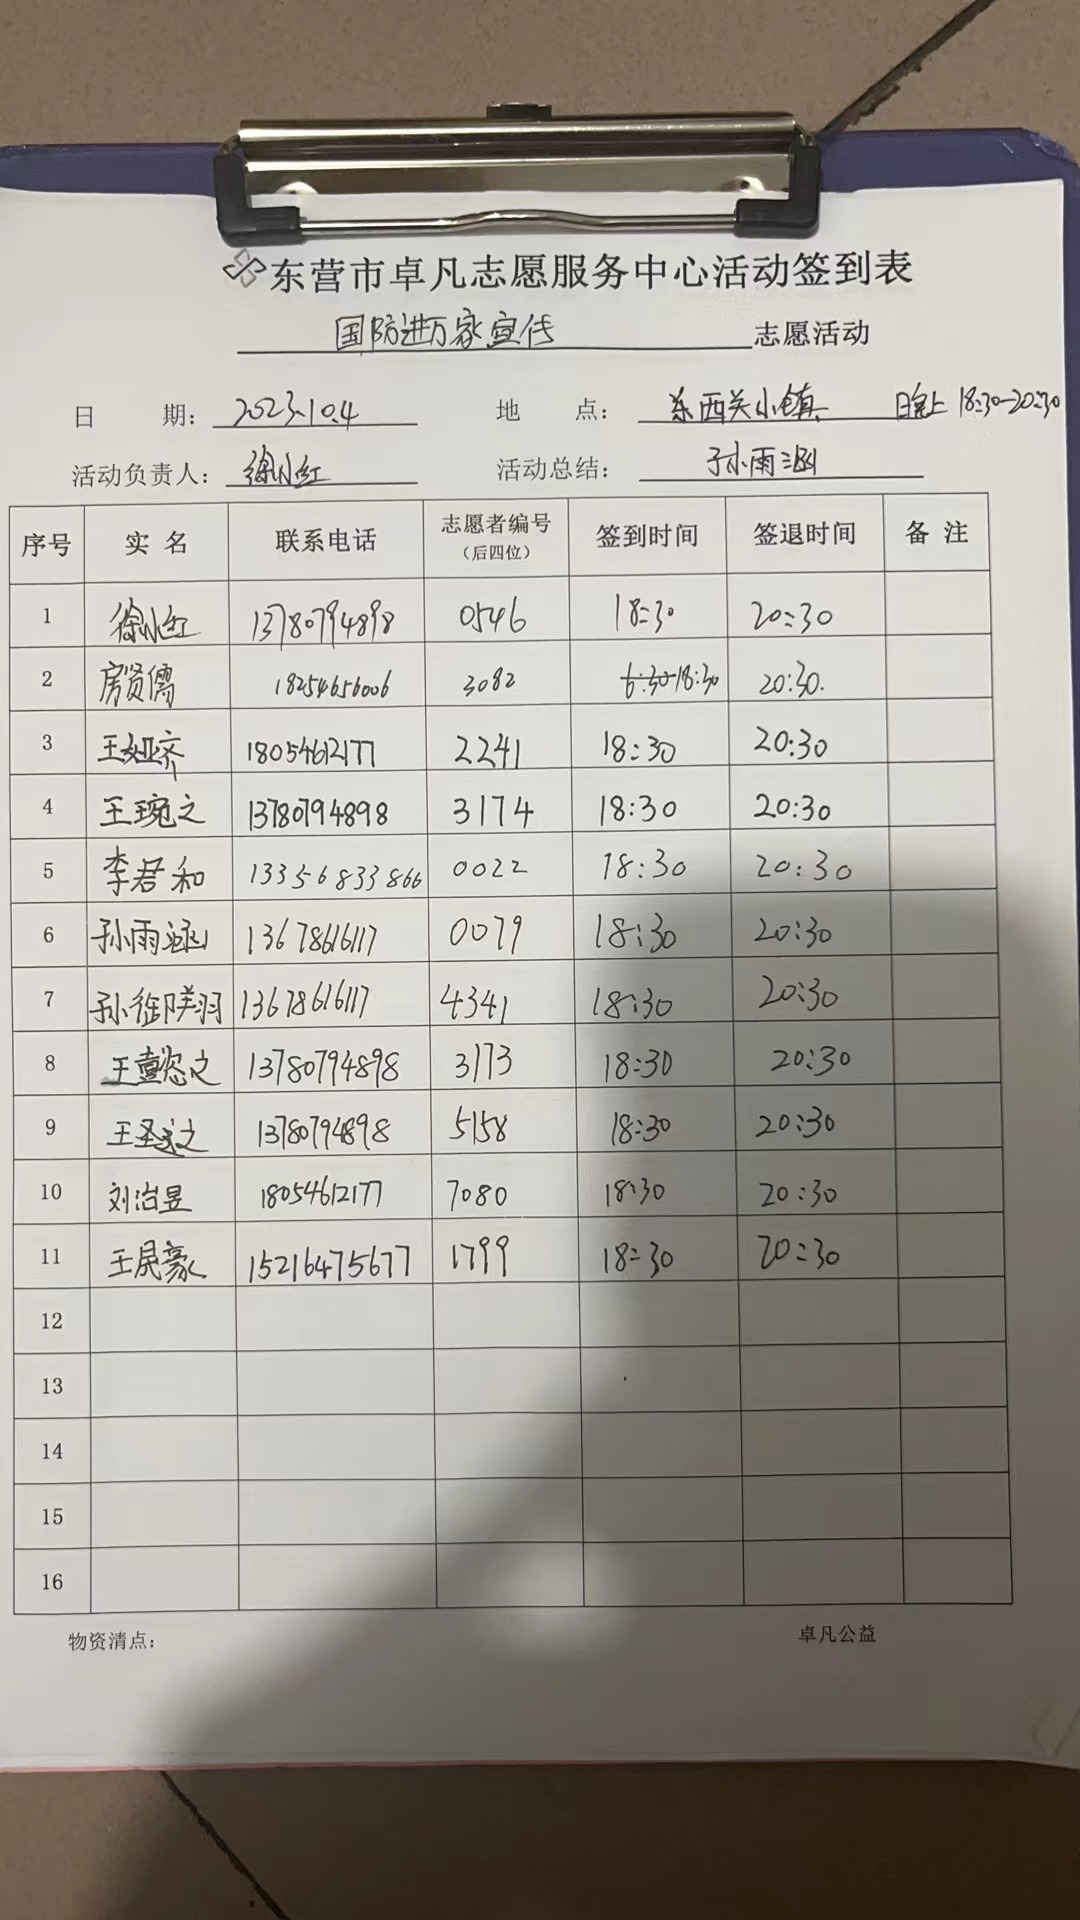 东营市卓凡志愿服务中心活动签到表
国防进万家宣传 志愿活动
日 期: 2023.10.4 地 点: 东西关小镇 晚上 18:30-20:30
活动负责人: 徐小红 活动总结: 孙雨涵
序号 实 名 联系电话 志愿者编号(后四位) 签到时间 签退时间 备 注
1 徐小红 13780794898 0546 18:30 20:30
2 房贤儒 18254656006 3082 6:30 18:30 20:30.
3 王娅齐 18054612177 2241 18:30 20:30
4 王琬之 13780794898 3174 18:30 20:30
5 李君和 13356833866 0022 18:30 20:30
6 孙雨涵 13678616117 0079 18:30 20:30
7 孙 翔 13678616117 4341 18:30 20:30
8 王壹恣之 13780794898 3173 18:30 20:30
9 王圣 之 13780794898 5158 18:30 20:30
10 刘治昱 18054612177 7080 18:30 20:30
11 王民豪 15216475677 1799 18:30 20:30
12
13
14
15
16
物资清点: 卓凡公益